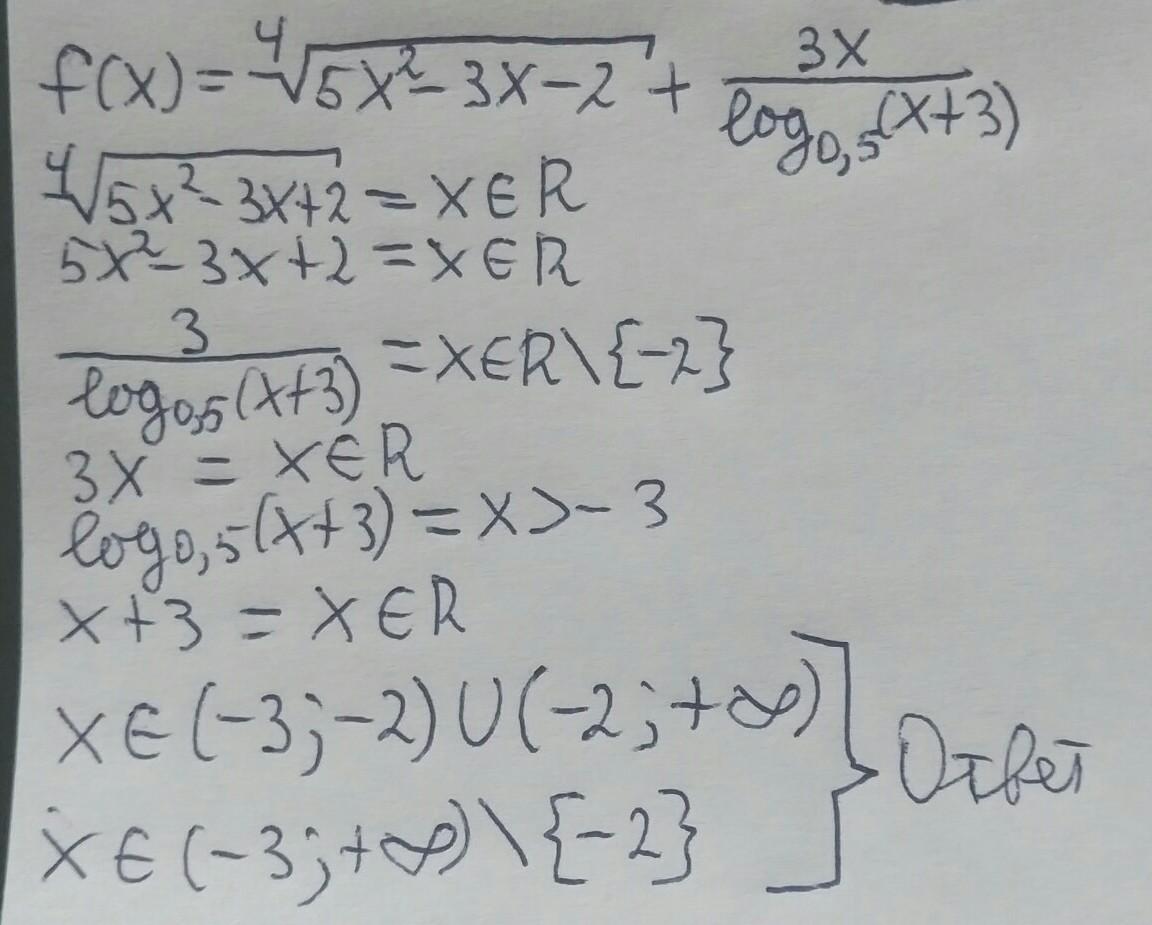 f(x) = ⁴√(5x² - 3x - 2) + 3x / log₀,₅(x+3)
⁴√(5x² - 3x + 2) = x ∈ R
5x² - 3x + 2 = x ∈ R
3 / log₀,₅(x+3) = x ∈ R \ {-2}
3x = x ∈ R
log₀,₅(x+3) = x > -3
x + 3 = x ∈ R
x ∈ (-3; -2) ∪ (-2; +∞)
x ∈ (-3; +∞) \ {-2}
} Ответ